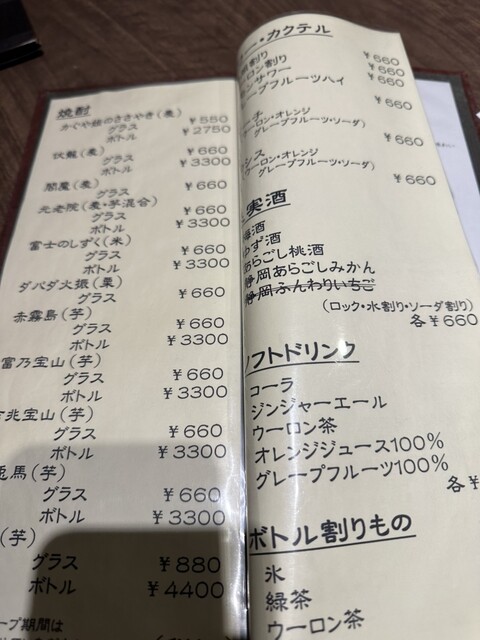 焼酎
かぐや姫のささやき(麦)
グラス ¥550
ボトル ¥2750
伏龍(麦)
グラス ¥660
ボトル ¥3300
閻魔(麦)
¥660
元老院(麦・芋混合)
グラス ¥660
ボトル ¥3300
富士のしずく(米)
グラス ¥660
ボトル ¥3300
ダバダ火振(栗)
グラス ¥660
赤霧島(芋)
グラス ¥660
ボトル ¥3300
富乃宝山(芋)
グラス ¥660
ボトル ¥3300
兆宝山(芋)
グラス ¥660
ボトル ¥3300
兎馬(芋)
グラス ¥660
ボトル ¥3300
(芋)
グラス ¥880
ボトル ¥4400
ープ期間は
ー・カクテル
割り ¥660
ーロン割り ¥660
ンサワー ¥660
ープフルーツハイ
¥660
ーチ
ーロン・オレンジ
グレープフルーツ・ソーダ)
¥660
シス
ウーロン・オレンジ
グレープフルーツ・ソーダ)
¥660
実酒
梅酒
ゆず酒
あらごし桃酒
静岡あらごしみかん
静岡ふんわりいちご
(ロック・水割り・ソーダ割り)
各¥660
ソフトドリンク
コーラ
ジンジャーエール
ウーロン茶
オレンジジュース100%
グレープフルーツ100%
各¥
ボトル割りもの
氷
緑茶
ウーロン茶